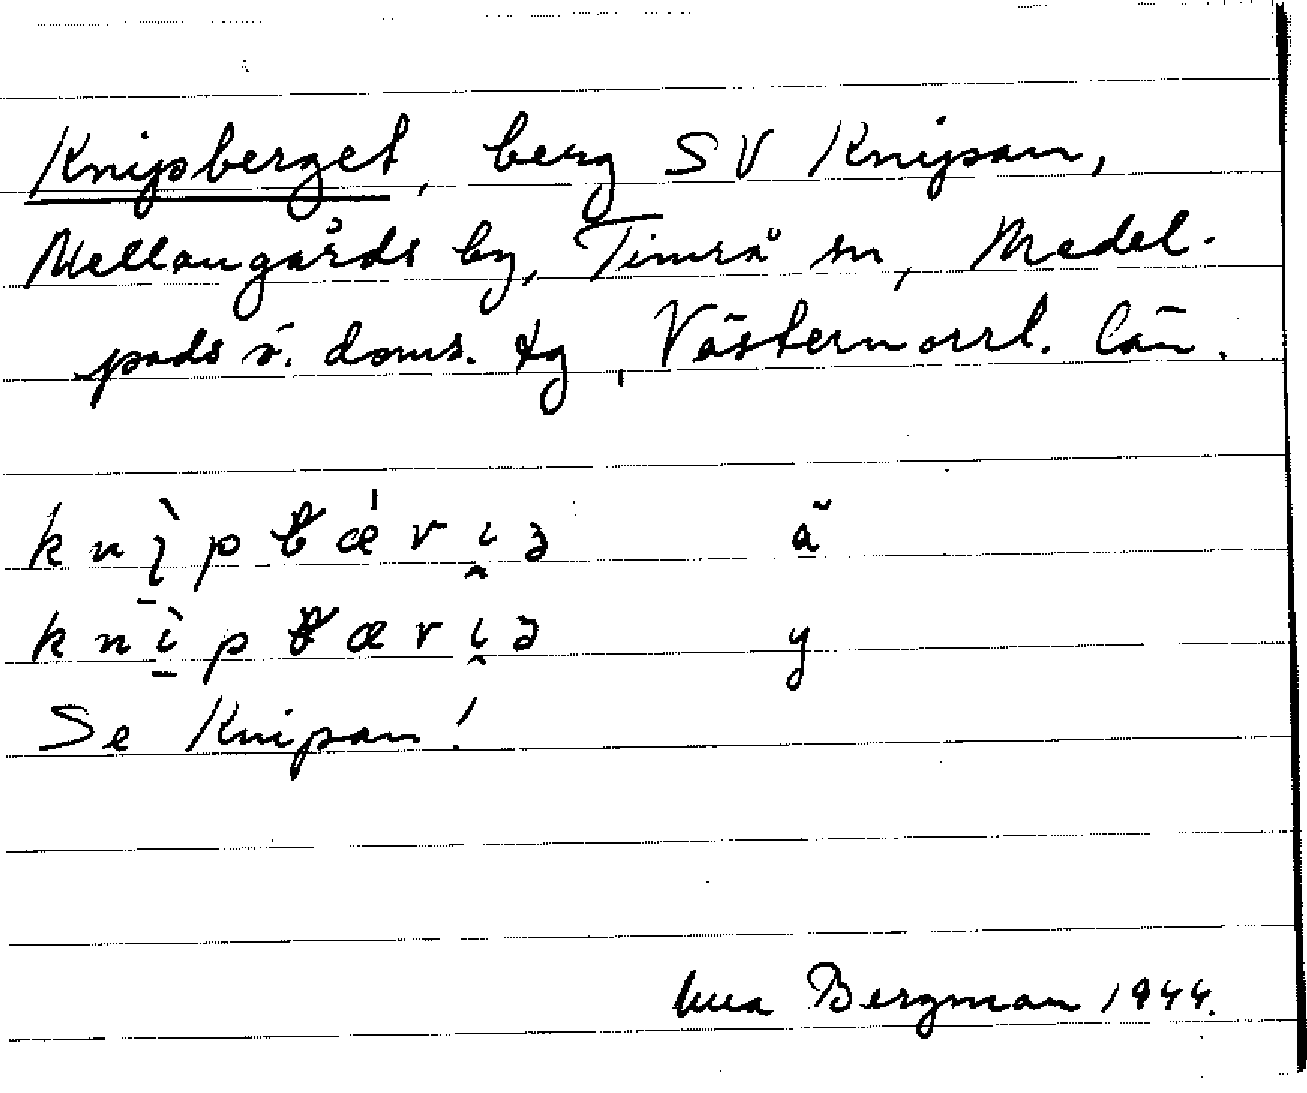 Knipberget, berg SV Knipan,
Mellangårds by, Timrå sn, Medel-
pads ö. doms. tg, Västernorrl. län.
knì̱pbǽrɩ̭ə ä
knì̱pbærɩ̭ə y
Se Knipan!
Bergman 1944.